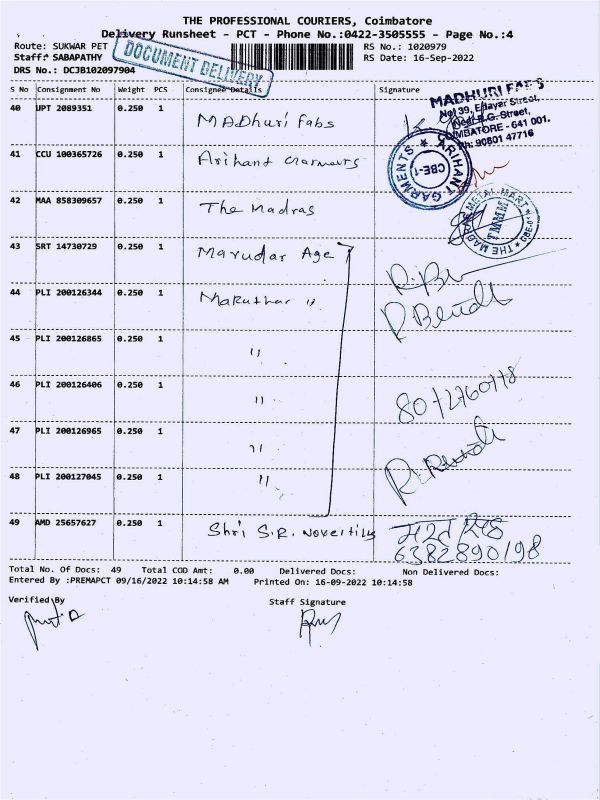 THE PROFESSIONAL COURIERS, Coimbatore
Delivery Runsheet - PCT - Phone No.:0422-3505555 - Page No.:4
Route: SUKWAR PET
RS No.: 1020979
Staff: SABAPATHY
RS Date: 16-Sep-2022
DRS No.: DCJB102097904
DOCUMENT DELIVERY
S No Consignment No Weight PCS Consignee Details Signature
40 UPT 2089351 0.250 1 MADhuri Fabs
MADHURI FABS
No! 39, Edayar Street,
Near R.G. Street,
COIMBATORE - 641 001.
Ph: 90801 47716
41 CCU 100365726 0.250 1 Arihant Garments
ARIHANT GARMENTS
CBE-1
42 MAA 858309657 0.250 1 The Madras
THE MADRAS METAL MART
TMMM
43 SRT 14730729 0.250 1 Marudar Age
44 PLI 200126344 0.250 1 Maruthar 11
45 PLI 200126865 0.250 1 11
46 PLI 200126406 0.250 1 11
47 PLI 200126965 0.250 1 11
48 PLI 200127045 0.250 1 11
49 AMD 25657627 0.250 1 Shri S.R. Novertilis
6382890198
Total No. Of Docs: 49 Total COD Amt: 0.00 Delivered Docs: Non Delivered Docs:
Entered By :PREMAPCT 09/16/2022 10:14:58 AM Printed On: 16-09-2022 10:14:58
Verified By
Staff Signature